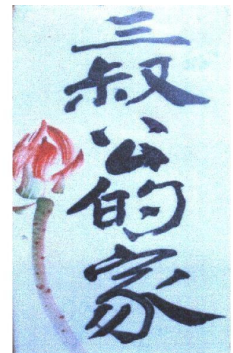 三叔公的家